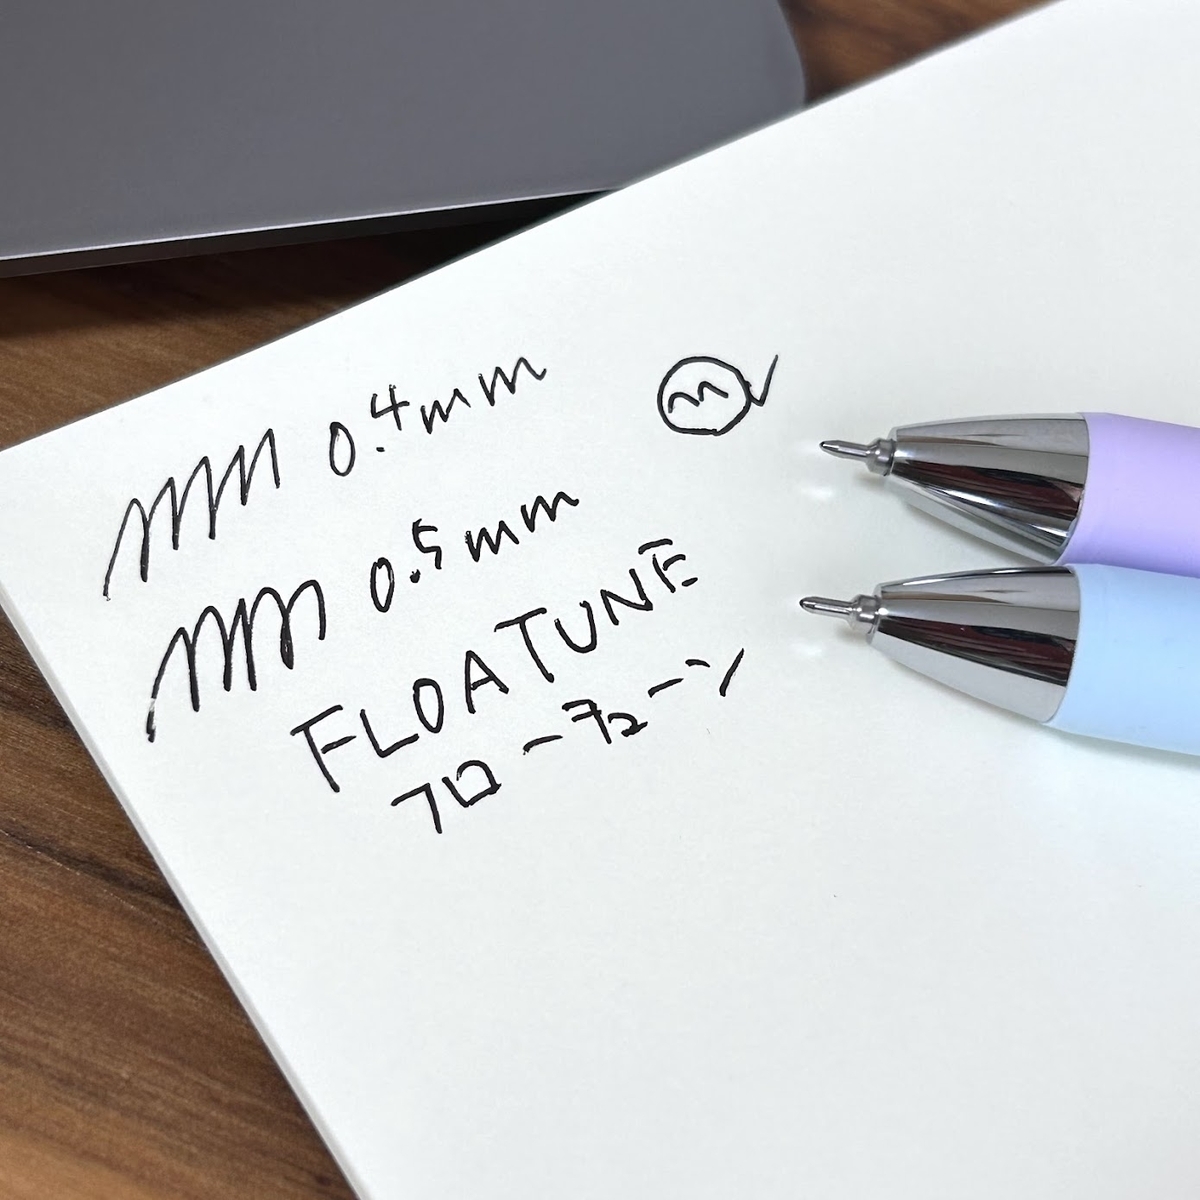 0.4mm
0.5mm
FLOATUNE
フローチューン